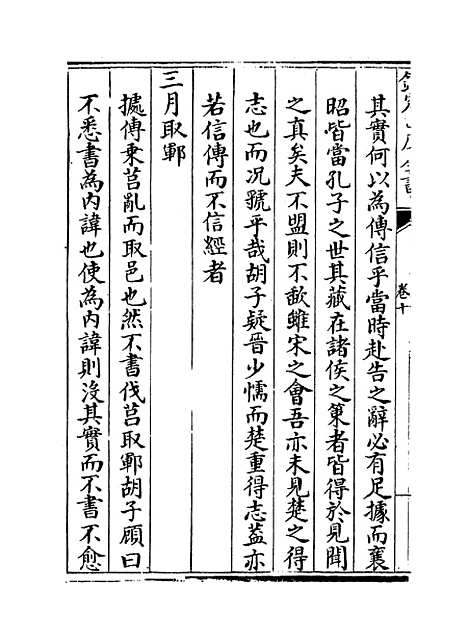 欽定四庫全書
卷十
其實何以為傳信乎當時赴告之辭必有足據而襄
昭皆當孔子之世其藏在諸侯之策者皆得於見聞
之真矣夫不盟則不歃雖宋之會吾亦未見楚之得
志也而况虢乎哉胡子疑晉少懦而楚重得志葢亦
若信傳而不信經者
三月取鄆
據傳乗莒亂而取邑也然不書伐莒取鄆胡子顧曰
不悉書為内諱也使為内諱則没其實而不書不愈